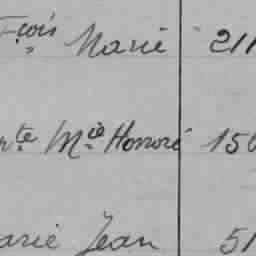 Fçois Marie 211
nte Mie Honoré 150
arie Jean 51